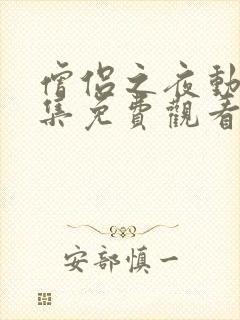 僧侶之夜動
集免費觀看
安部慎一